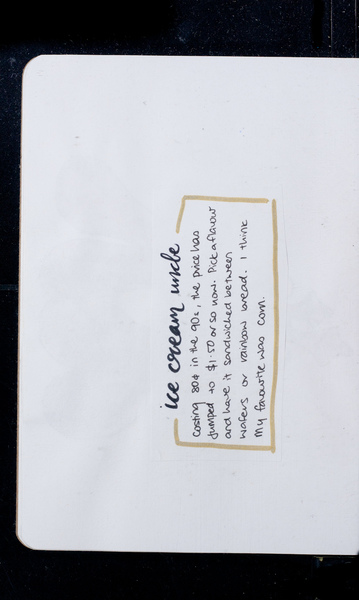 ice cream uncle
Costing 80¢ in the 90s, the price has
jumped to $1.50 or so now. Pick a flavour
and have it sandwiched between
wafers or rainbow bread. I think
my favourite was corn.